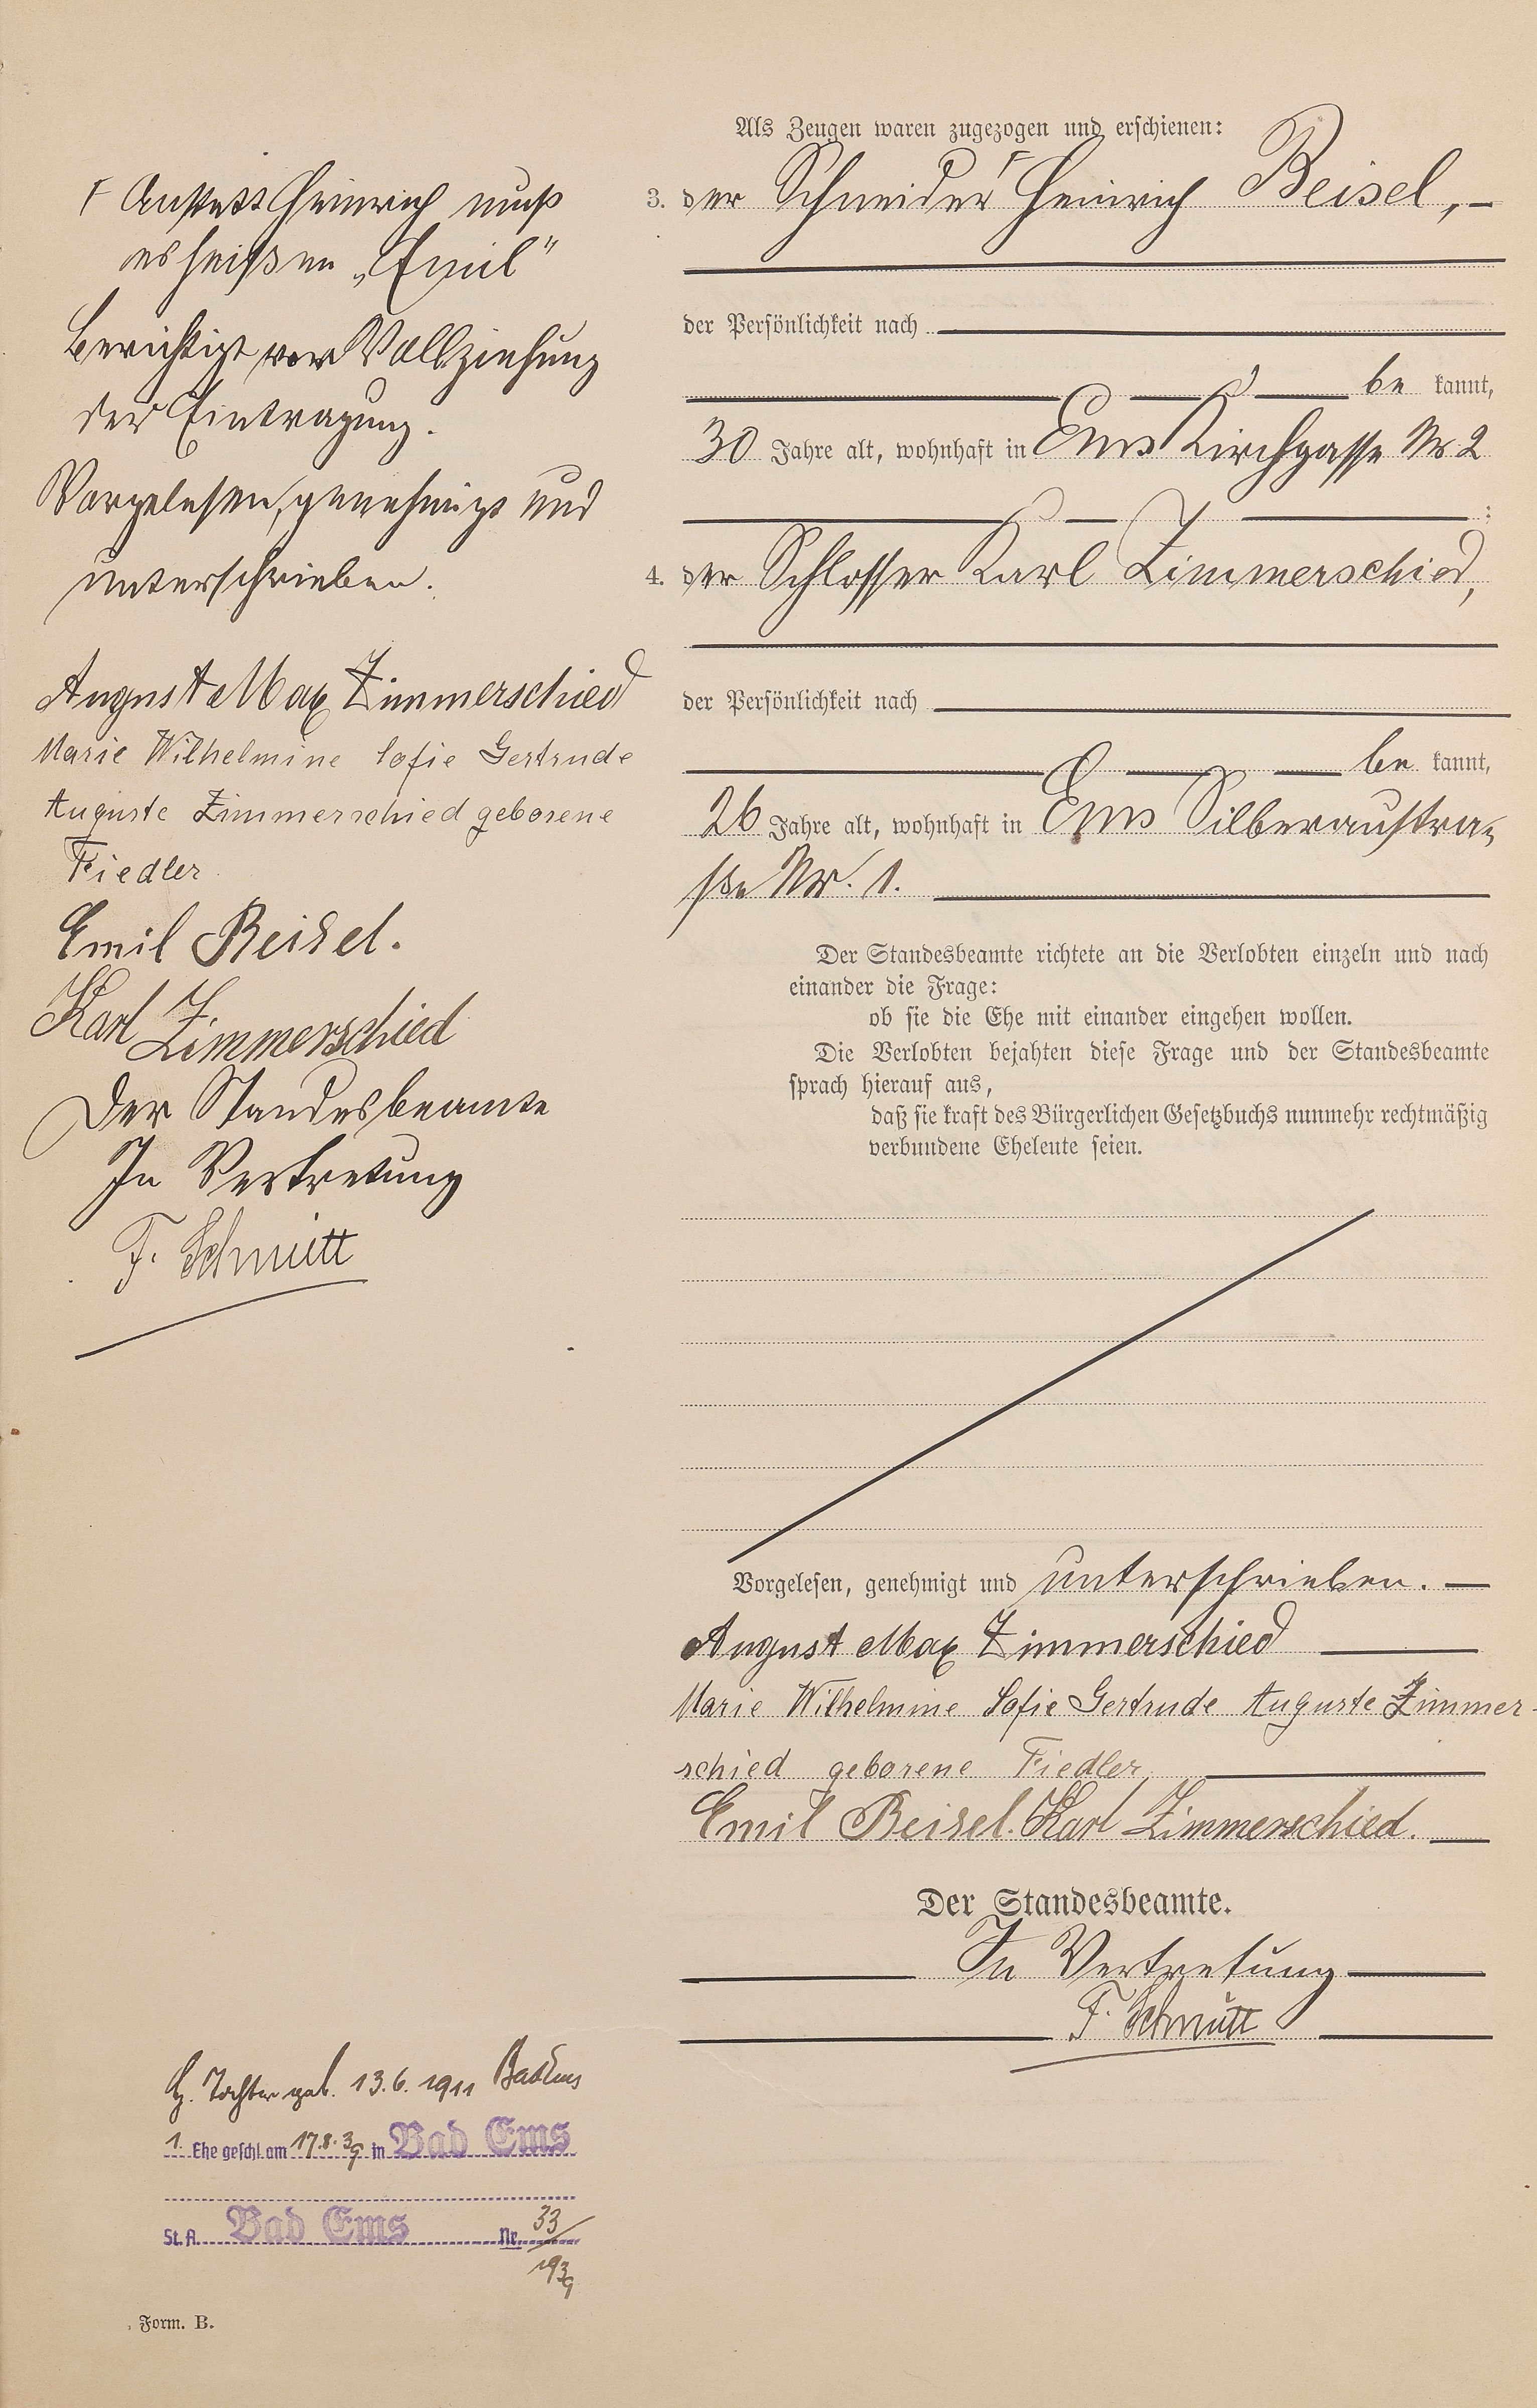 Als Zeugen waren zugezogen und erschienen:
3. der Schneider Ⲅ Heinrich Beisel, —
der Persönlichkeit nach
be kannt,
30 Jahre alt, wohnhaft in Ems Kirchgasse Nr 2
;
4. der Schlosser Karl Zimmerschied,
der Persönlichkeit nach
be kannt,
26 Jahre alt, wohnhaft in Ems Silberaustra-
ße Nr. 1.
Der Standesbeamte richtete an die Verlobten einzeln und nach
einander die Frage:
ob sie die Ehe mit einander eingehen wollen.
Die Verlobten bejahten diese Frage und der Standesbeamte
sprach hierauf aus,
daß sie kraft des Bürgerlichen Gesetzbuchs nunmehr rechtmäßig
verbundene Eheleute seien.
Vorgelesen, genehmigt und unterschrieben. —
August Max Zimmerschied
Marie Wilhelmine Sofie Gertrude Auguste Zimmer-
schied geborene Fiedler
Emil Beisel. Karl Zimmerschied.
Der Standesbeamte.
In Vertretung
F. Schmitt
Ⲅ Anstatt Heinrich muß
es heißen „Emil"
Berichtigt vor Vollziehung
der Eintragung.
Vorgelesen, genehmigt und
unterschrieben.
August Max Zimmerschied
Marie Wilhelmine Sofie Gertrude
Auguste Zimmerschied geborene
Fiedler
Emil Beisel.
Karl Zimmerschied
Der Standesbeamte
In Vertretung
F. Schmitt
Tochter geb. 13.6.1911 Bad Ems
1. Ehe geschl. am 17.8.39 in Bad Ems
St. A. Bad Ems Nr. 33/
1939
Form. B.